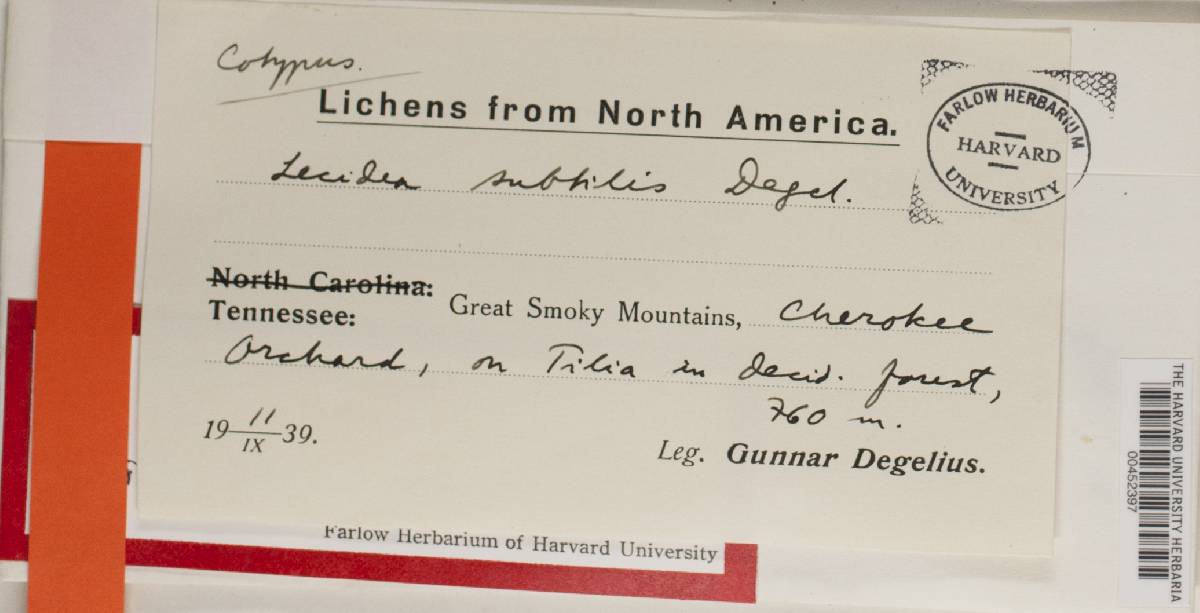 Cotypus.
Lichens from North America.
FARLOW HERBARIUM
HARVARD
UNIVERSITY
Lecidea subtilis Degel.
North Carolina:
Tennessee:
Great Smoky Mountains, Cherokee
Orchard, on Tilia in decid. forest,
760 m.
19 11/IX 39.
Leg. Gunnar Degelius.
Farlow Herbarium of Harvard University
THE HARVARD UNIVERSITY HERBARIA
00452397